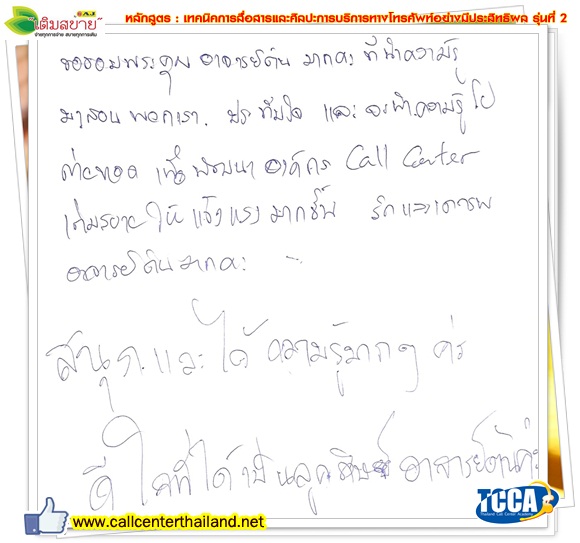 A.A.J
"เติมสบาย"
จ่ายทุกการจ่าย สบายทุกการเติม
หลักสูตร : เทคนิคการสื่อสารและศิลปะการบริการทางโทรศัพท์อย่างมีประสิทธิผล รุ่นที่ 2
ขอขอบพระคุณ อาจารย์ต้น มากคะ ที่นำความรู้
มาสอนพวกเรา. ประทับใจ และ จะนำความรู้ไป
ถ่ายทอด เพื่อพัฒนา องค์กร Call Center
เติมสบาย ให้ แข็งแรง มากขึ้น รักและเคารพ
อาจารย์ต้นมากคะ
สนุก และ ได้ ความรู้มากๆ ค่ะ
ดีใจที่ได้เป็นลูกศิษย์ อาจารย์ต้นค่ะ
www.callcenterthailand.net
TCCA
Thailand Call Center Academy